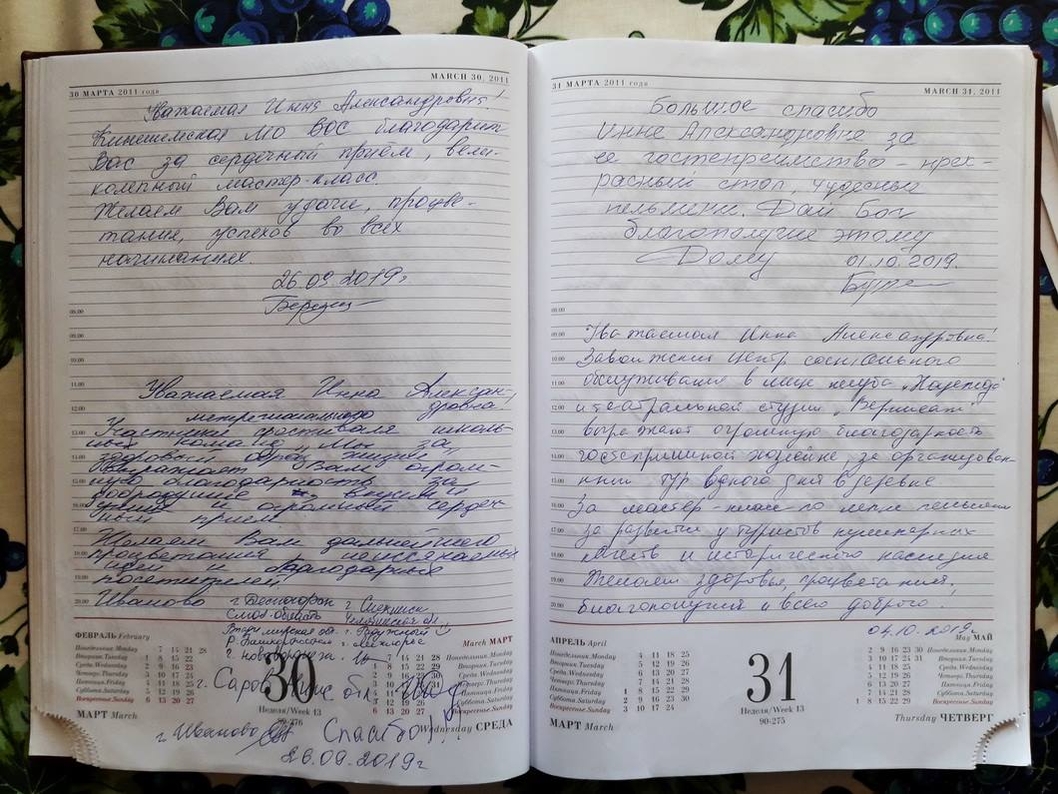 30 МАРТА 2011 года
MARCH 30, 2011
Уважаемая Инна Александровна!
Кинешемская МО ВОС благодарит
Вас за сердечный приём, вели-
колепный мастер-класс.
Желаем Вам удачи, процве-
тания, успехов во всех
начинаниях.
26.09.2019г
08.00
09.00
10.00
11.00
Уважаемая Инна Алексан-
12.00
дровна
межрегионального
13.00
Участники фестиваля школь-
ных команд "Мы за
14.00
здоровый образ жизни"
выражают Вам огром-
15.00
ную благодарность за
добродушие
16.00
и огромный сердеч-
ный прием.
17.00
Желаем Вам дальнейшего
18.00
процветания, неиссякаемых
идей и благодарных
19.00
посетителей
20.00
Иваново г. Десногорск
Смол. область Челябинская обл.
Владимирская обл. г. Радужный
Р. Башкортостан
г. Саров
г. Иваново Спасибо!
26.09.2019г
ФЕВРАЛЬ February
Понедельник.Monday 7 14 21 28
Вторник.Tuesday 1 8 15 22
Среда.Wednesday 2 9 16 23
Четверг.Thursday 3 10 17 24
Пятница.Friday 4 11 18 25
Суббота.Saturday 5 12 19 26
Воскресенье.Sunday 6 13 20 27
30
Неделя/Week 13
90-276
March МАРТ
7 14 21 28 Понедельник.Monday
1 8 15 22 29 Вторник.Tuesday
2 9 16 23 30 Среда.Wednesday
Четверг.Thursday
Пятница.Friday
Суббота.Saturday
6 13 20 27 Воскресенье.Sunday
МАРТ March
Wednesday СРЕДА
31 МАРТА 2011 года
MARCH 31, 2011
Большое спасибо
Инне Александровне за
ее гостепреимство – прек-
расный стол, чудесные
пельмени. Дай Бог
благополучие этому
Дому 01.10.2019.
08.00
09.00
Уважаемая Инна Александровна!
10.00
Заволжский центр социального
11.00
обслуживания в лице клуба "Надежда"
12.00
и театральной студии "Вернисаж"
13.00
выражают огромную благодарность
14.00
гостеприимной хозяйке, за организован-
15.00
ный тур одного дня в деревне
16.00
За мастер-класс по лепке пельменей
17.00
за развитие у туристов кулинарных
18.00
качеств и исторического наследия
19.00
Желаем здоровья, процветания!
20.00
благополучия и всего доброго!
04.10.2019г.
АПРЕЛЬ April
Понедельник.Monday 4 11 18 25
Вторник.Tuesday 5 12 19 26
Среда.Wednesday 6 13 20 27
Четверг.Thursday 7 14 21 28
Пятница.Friday 1 8 15 22 29
Суббота.Saturday 2 9 16 23 30
Воскресенье.Sunday 3 10 17 24
31
Неделя/Week 13
90-275
May МАЙ
2 9 16 23 30 Понедельник.Monday
3 10 17 24 31 Вторник.Tuesday
4 11 18 25 Среда.Wednesday
5 12 19 26 Четверг.Thursday
6 13 20 27 Пятница.Friday
7 14 21 28 Суббота.Saturday
1 8 15 22 29 Воскресенье.Sunday
МАРТ March
Thursday ЧЕТВЕРГ